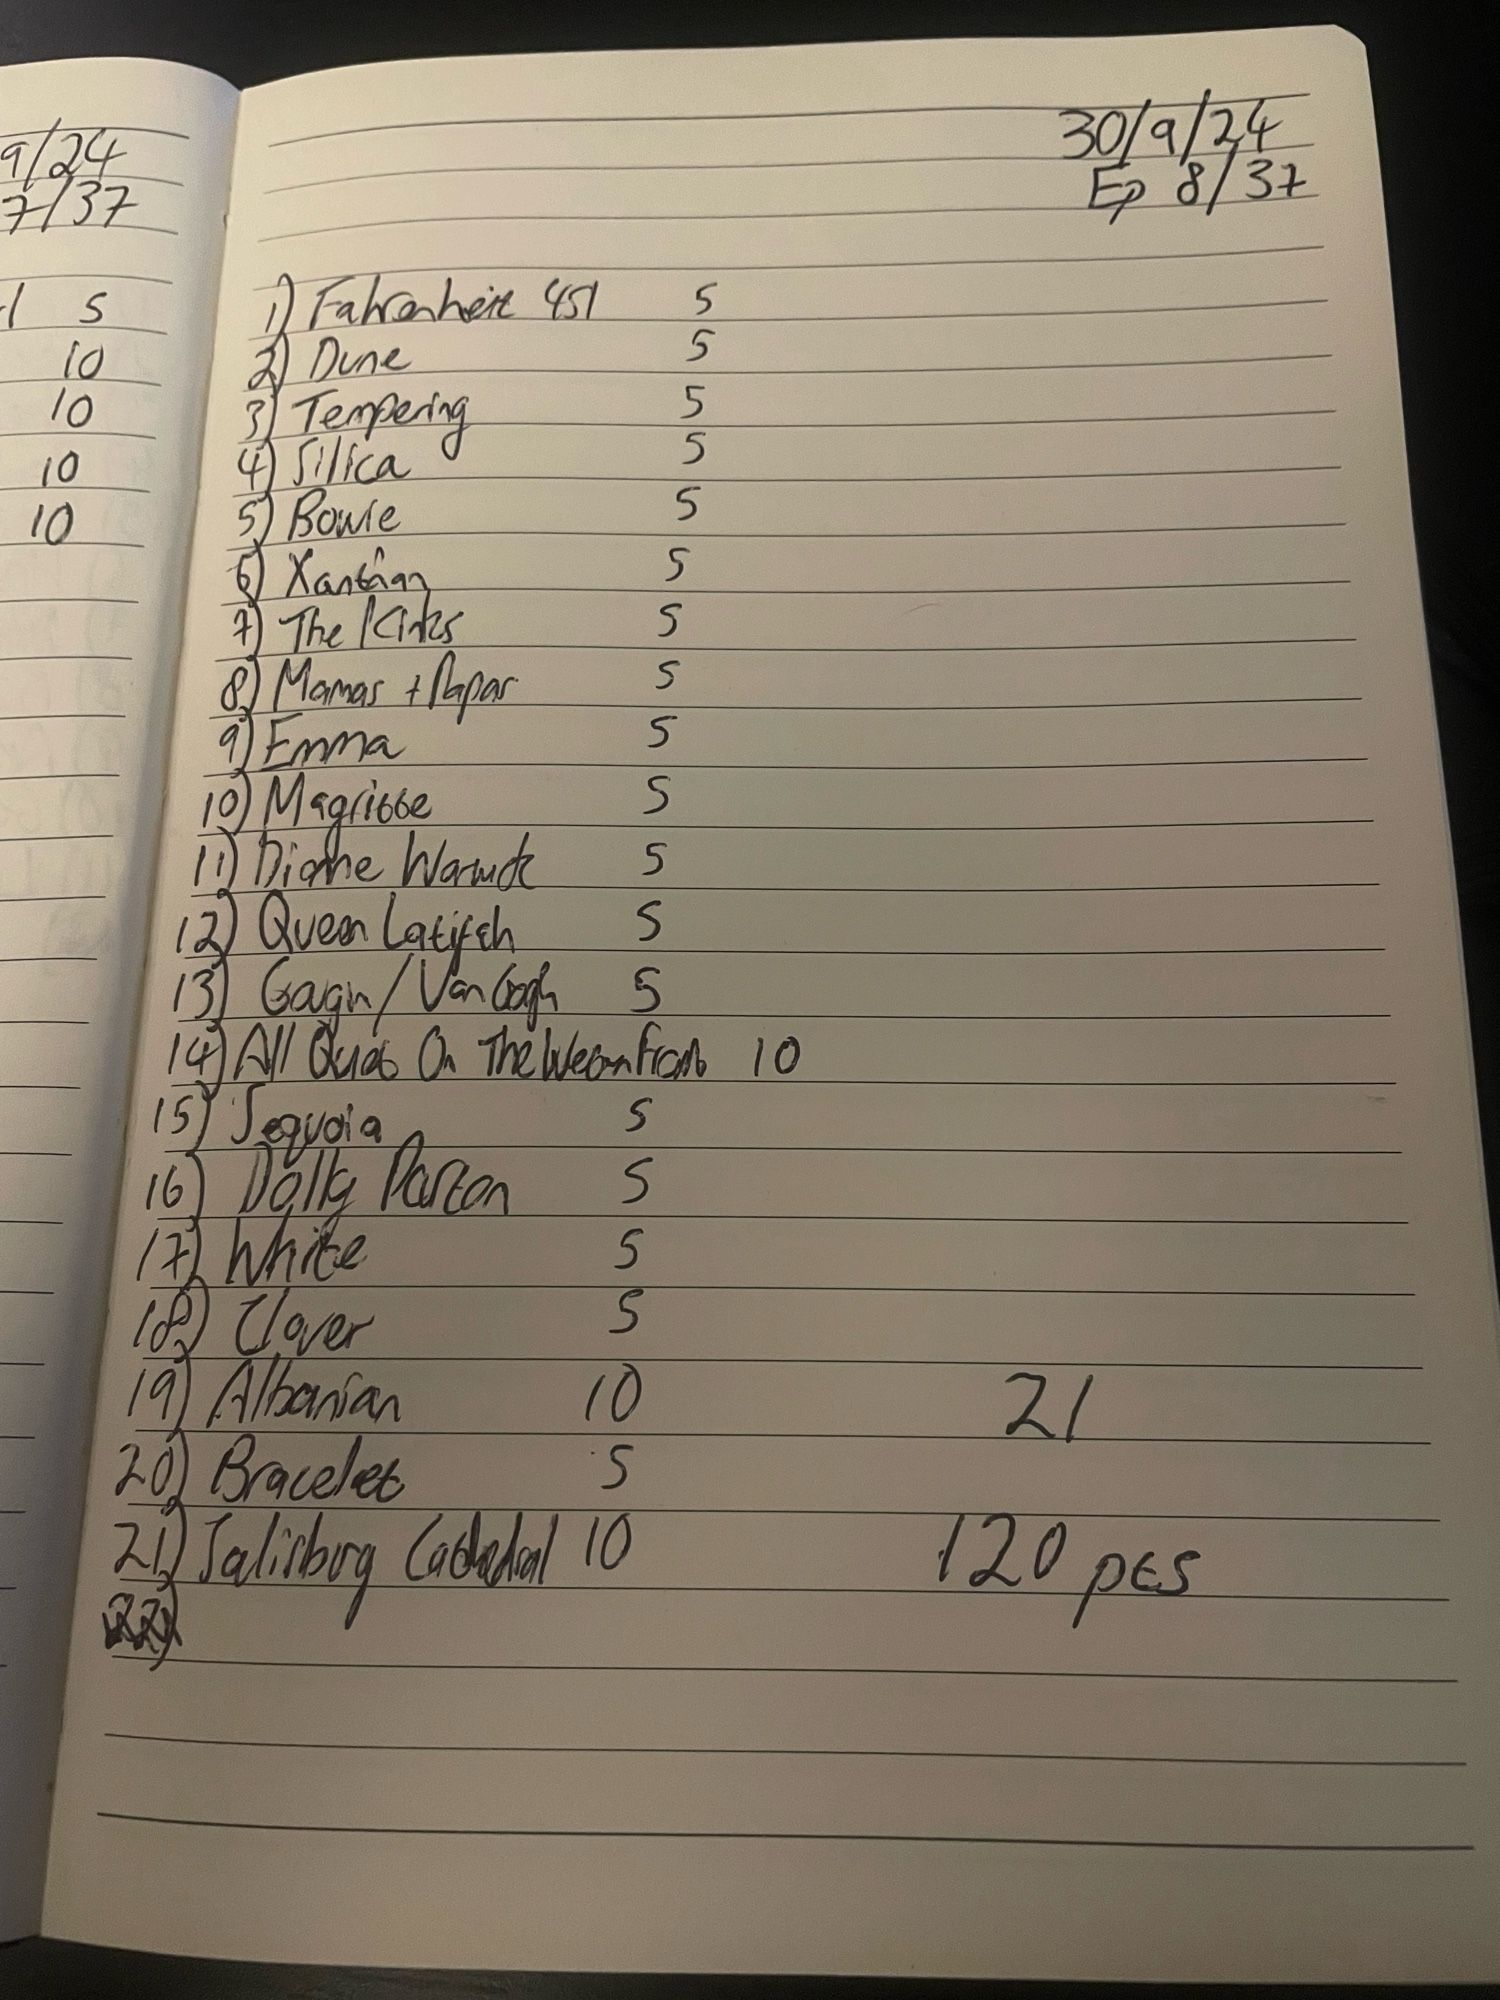 9/24
7/37
5
10
10
10
10
30/9/24
Ep 8/37
1) Fahrenheit 451 5
2) Dune 5
3) Tempering 5
4) Silica 5
5) Bowie 5
6) Xanthan 5
7) The Kinks 5
8) Mamas + Papas 5
9) Emma 5
10) Magritte 5
11) Dionne Warwick 5
12) Queen Latifah 5
13) Gaugin / Van Gogh 5
14) All Quiet On The Western Front 10
15) Sequoia 5
16) Dolly Parton 5
17) White 5
18) Clover 5
19) Albanian 10
21
20) Bracelet 5
21) Salisburg Cathedral 10
120 pts
22)